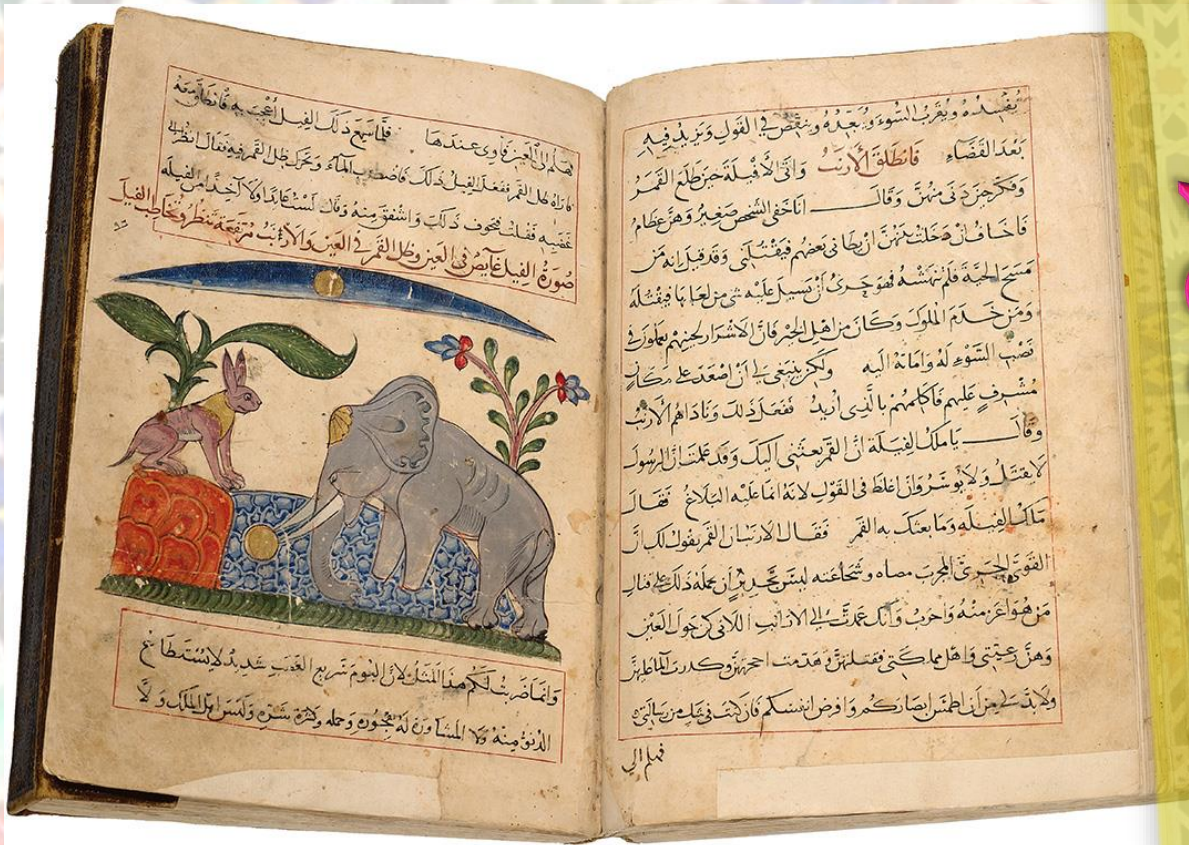 يفسده ويقرب السوء ويبعده وينقص في القول ويزيد فيه
بعد القضاء فانطلق الأرنب واتى لأفيلة حين طلع القمر
وفكر حين دنى منهن وقال انا خفي الشخص صغير وهن عظام
فاخاف ان دخلت بينهن ان يطاني بعضهم فيقتلني وقد قيل انه من
مسح الحية فلم تنهشه فهو حرى أن يسيل عليه شي من لعابها فيقتله
ومن خدم الملوك وكان من اهل الخير فان الاشرار يعملون في
نصب السوء له وامانة اليه ولكن ينبغي لي ان اصعد على مكان
مشرف عليهم فاكلمهم بالذى اريد ففعل ذلك وناداهم الأرنب
وقال يا ملك الفيلة ان القمر بعثنى اليك وقد علمت ان الرسول
لا يقتل ولا يوسر وان اغلظ في القول لانه انما عليه البلاغ فقال
ملك الفيله وما بعثك به القمر فقال الارنب ان القمر يقول لك ان
القوى الجرى المجرب وشجاعته ليس بجدير ان يحمله ذلك على قتال
من هو اعز منه واحرب وانك عمدت الى الارانب اللاتى كن حول العين
وهن رعيتى واهل مملكتى فقتلتهن وهدمت احجرتهن وكدرت الما عليهن
ولا بد لي من ان اطمس ابصاركم وافرض انفسكم فان كنت في شك من رسالتى
فهلم الى
فهلم الى العين فاوى عندها فلما سمع ذلك الفيل اعجب به فانطلق معه
فاراه ظل القمر ففعل الفيل ذلك فاضطرب الماء وتحرك ظل القمر فيه فقال انظر الى
غضبه فتخوف ذلك واشفق منه وقال لست عايدا ولا آخذا من الفيله
صورة الفيل غايص في العين وظل القمر في العين والأرنب مرتفعة تنظر وتخاطب الفيل
وانما ضربت لكم هذا المثل لان البوم سريع الغضب شديد لا يستطاع
الدنو منه ولا المشاورة له لفجوره وجهله وكثرة شره وليس اهل الملك ولا